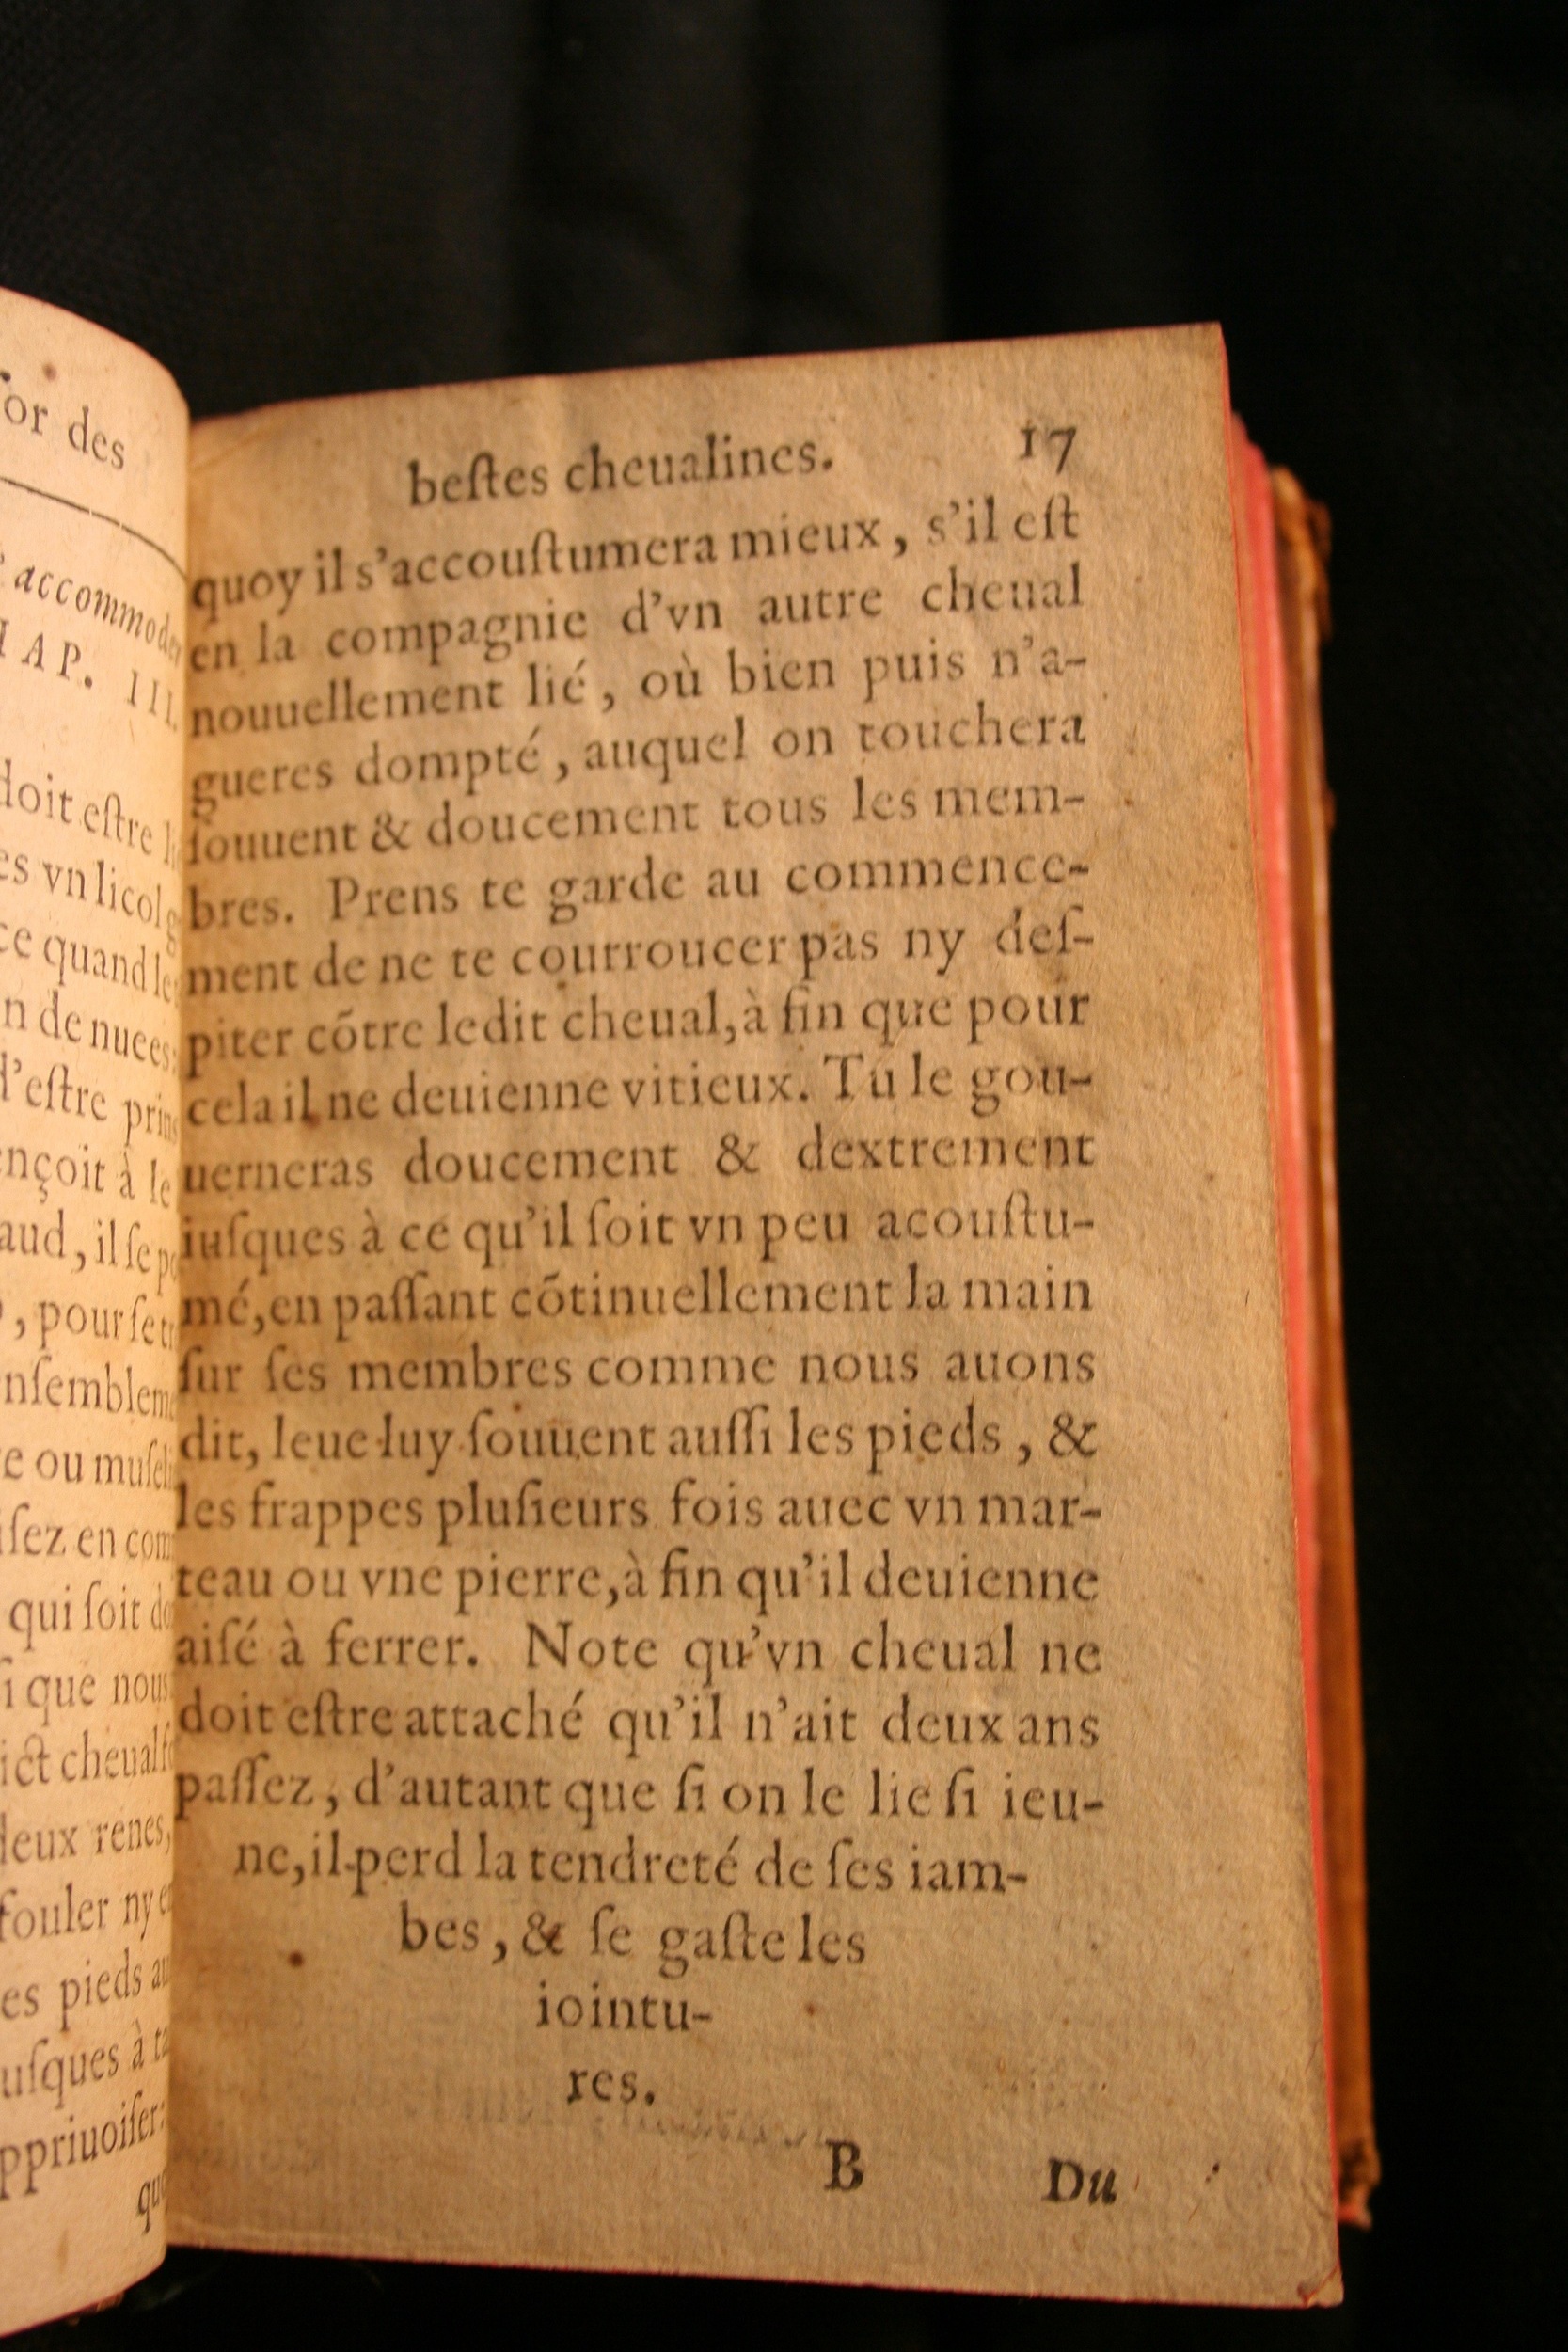 or des
accommoder
AP. III.
doit estre
es vn licol
ce quand le
n de nuees:
d'estre
ençoit à le
aud, il se
, pour se
nsemblem
e ou musel
isez en com
qui soit
si que nous
ict cheual
deux renes,
fouler ny
es pieds au
usques à
ppriuoisera
quoy
beſtes cheualines. 17
quoy il s'accouſtumera mieux, s'il eſt
en la compagnie d'vn autre cheual
nouuellement lié, où bien puis n'a-
gueres dompté, auquel on touchera
ſouuent & doucement tous les mem-
bres. Prens te garde au commence-
ment de ne te courroucer pas ny deſ-
piter cõtre ledit cheual, à fin que pour
cela il ne deuienne vitieux. Tu le gou-
uerneras doucement & dextrement
iuſques à ce qu'il ſoit vn peu acouſtu-
mé, en paſſant cõtinuellement la main
ſur ſes membres comme nous auons
dit, leue luy ſouuent auſſi les pieds, &
les frappes pluſieurs fois auec vn mar-
teau ou vne pierre, à fin qu'il deuienne
aiſé à ferrer. Note qu'vn cheual ne
doit eſtre attaché qu'il n'ait deux ans
paſſez, d'autant que ſi on le lie ſi ieu-
ne, il perd la tendreté de ſes iam-
bes, & ſe gaſte les
iointu-
res.
B Du